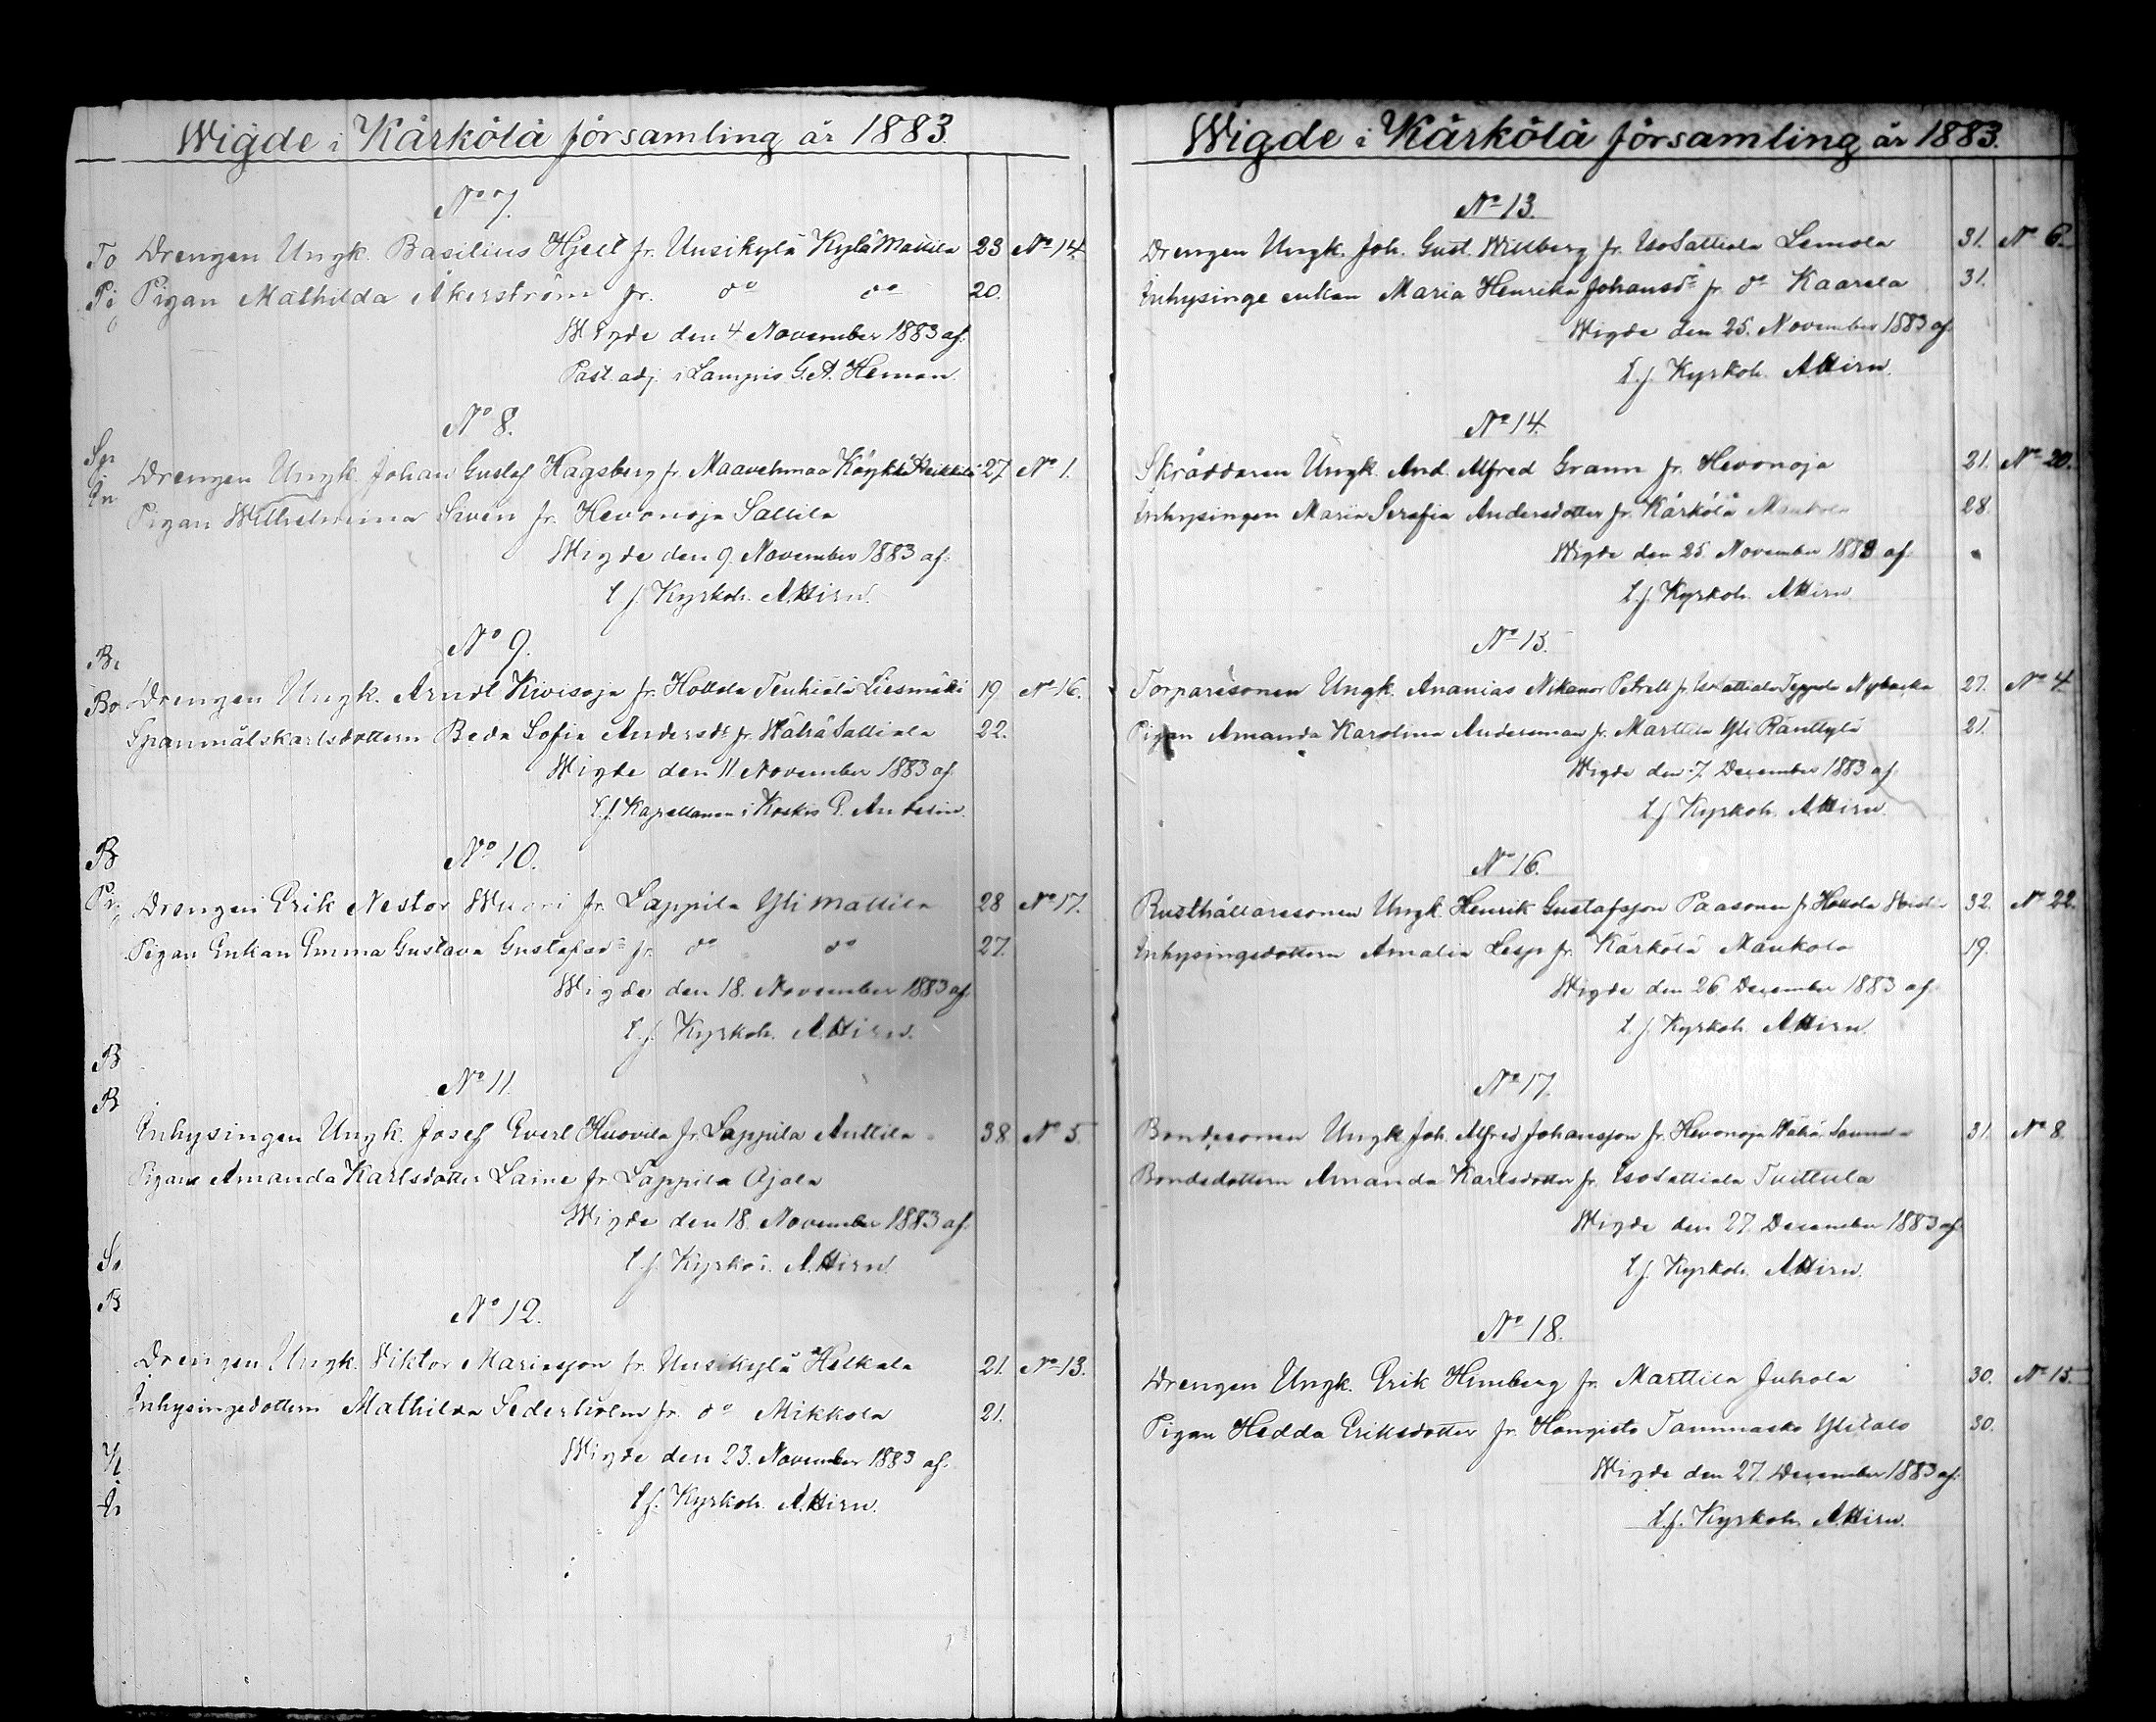 Wigde i Kärkölä församling år 1883.
No 7.
Drengen Ungk. Basilius Hjelt fr. Uusikylä Kylä Mattila 23 No 14.
Pigan Mathilda Åkerström fr. do do 20.
Wigde den 4 November 1883 af:
Past. adj. i Lampis G. A. Heman.
No 8.
Drengen Ungk. Johan Gustaf Hagsberg fr. Maavehmaa Köykkä Heikkilä 27 No 1.
Pigan Wilhelmina Siven fr. Hevonoja Sattila
Wigde den 9. November 1883 af:
t. f. Kyrkoh. A. Hirn.
No 9.
Drengen Ungk. Arndt Kivisoja fr. Hollola Tenhiälä Liesmäki 19 No 16.
Spanmålskarlsdottern Beda Sofia Andersdr fr. Wähä Sattiala 22.
Wigde den 11 November 1883 af:
t. f. Kapellanen i Koskis P. Antelin.
No 10.
Drengen Erik Nestor Wuori fr. Lappila Yli Mattila 28 No 17.
Pigan Enkan Emma Gustava Gustafsdr fr. do do 27.
Wigde den 18. November 1883 af:
t. f. Kyrkoh. A. Hirn.
No 11.
Inhysingen Ungk. Josef Evert Huovila fr. Lappila Anttila 38. No 5.
Pigan Amanda Karlsdotter Laine fr. Lappila Ojala
Wigde den 18. November 1883 af:
t. f. Kyrkoh. A. Hirn.
No 12.
Drengen Ungk. Viktor Mariasson fr. Uusikylä Helkala 21. No 13.
Inhysingedottern Mathilda Sederholm fr. do Mikkola 21.
Wigde den 23. November 1883 af:
t. f. Kyrkoh. A. Hirn.
Wigde i Kärkölä församling år 1883.
No 13.
Drengen Ungk. Joh. Gust. Willberg fr. Iso Sattiala Lemola 31. No 6.
Inhysinge enkan Maria Henrika Johansdr fr. do Kaarela 31.
Wigde den 25. November 1883 af:
t. f. Kyrkoh. A. Hirn.
No 14.
Skräddaren Ungk. And. Alfred Grann fr. Hevonoja 21. No 20.
Inhysingen Maria Serafia Andersdotter fr. Kärkölä Maukola 28.
Wigde den 25. November 1883 af:
t. f. Kyrkoh. A. Hirn.
No 15.
Torparesonen Ungk. Ananias Nikanor Petrell fr. Iso Sattiala Teppola Nybacka 27. No 4.
Pigan Amanda Karolina Andersman fr. Marttila Yli Räntlylä 21.
Wigde den 7. December 1883 af:
t. f. Kyrkoh. A. Hirn.
No 16.
Rusthållaresonen Ungk. Henrik Gustafsson Paasonen fr. Hollola 32. No 22.
Inhysingsdottern Amalia Lesp fr. Kärkölä Maukola 19.
Wigde den 26. December 1883 af:
t. f. Kyrkoh. A. Hirn.
No 17.
Bondesonen Ungk. Joh. Alfred Johansson fr. Hevonoja Wähä 31. No 8.
Bondedottern Amanda Karlsdotter fr. Iso Sattiala Tuittula
Wigde den 27. December 1883 af:
t. f. Kyrkoh. A. Hirn.
No 18.
Drengen Ungk. Erik Himberg fr. Marttila Juhola 30. No 15.
Pigan Hedda Eriksdotter fr. Hongisto Tommasko Ylitalo 30.
Wigde den 27. December 1883 af:
t. f. Kyrkoh. A. Hirn.